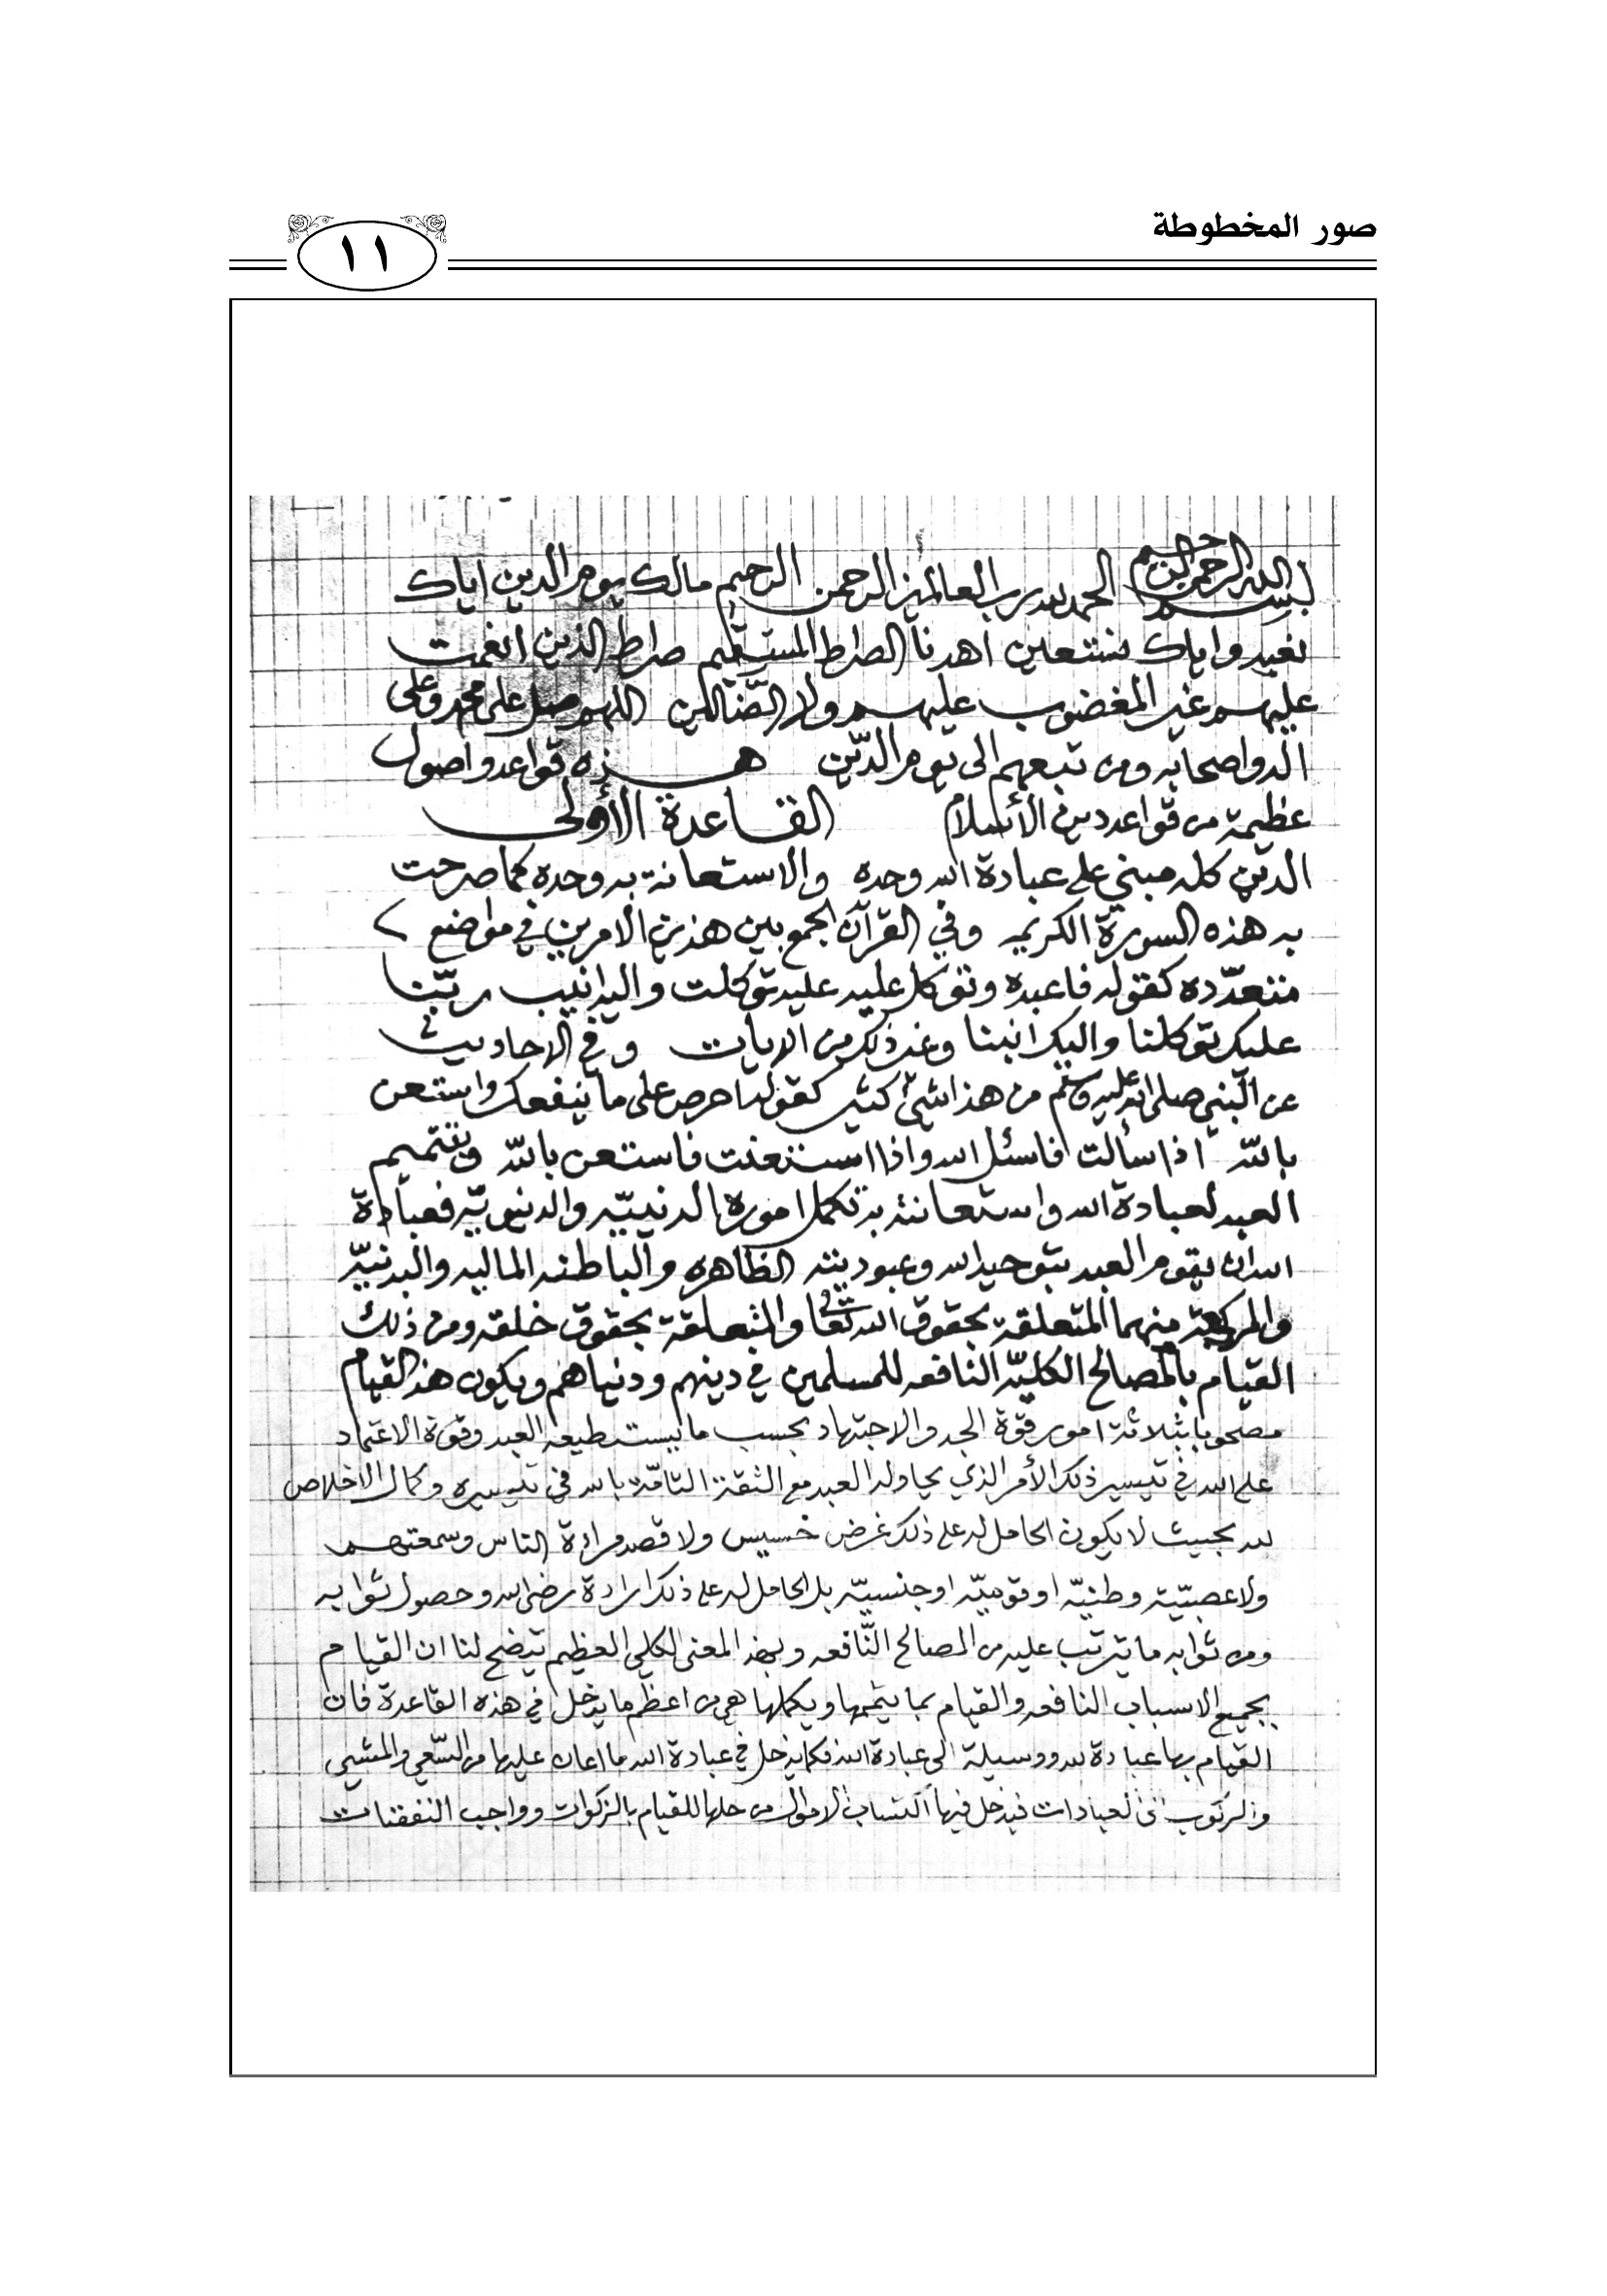 صور المخطوطة
١١
بسم الله الرحمن الرحيم الحمد لله رب العالمين الرحمن الرحيم مالك يوم الدين اياك
نعبد واياك نستعين اهدنا الصراط المستقيم صراط الذين انعمت
عليهم غير المغضوب عليهم ولا الضّالين اللهم صل على محمد وعلى
اله واصحابه ومن تبعهم الى يوم الدّين هذه قواعد واصول
عظيمة من قواعد دين الأسلام القاعدة الأولى
الدين كله مبني على عبادة الله وحده والاستعانة به وحده كما صرحت
به هذه السورة الكريمه وفي القرآن الجمع بين هذين الامرين في مواضع
متعدّده كقوله فاعبده وتوكل عليه عليه توكلت واليه انيب ربّنا
عليك توكلنا واليك انبنا وغير ذلك من الايات وفي الاحاديث
عن النبي صلى الله عليه وسلم من هذا شيئ كثير كقوله احرص على ما ينفعك واستعن
بالله اذا سألت فاسئل الله واذا استعنت فاستعن بالله وبتتميم
العبد لعبادة الله واستعانته به تكمل اموره الدينيّه والدنيويّه فعبادة
الله ان يقوم العبد بتوحيد الله وعبوديته الظاهره والباطنه الماليه والبدنيّه
والمركبة منهما المتعلقة بحقوق الله تعالى والمتعلقة بحقوق خلقه ومن ذلك
القيام بالمصالح الكليّه النافعه للمسلمين في دينهم ودنياهم ويكون هذا القيام
مصحوبا بثلاثة امور قوة الجد والاجتهاد بحسب ما يستطيعه العبد وقوة الاعتماد
على الله في تيسير ذلك الأمر الذي يحاوله العبد مع الثقة التامّة بالله في تيسيره وكمال الاخلاص
لله بحيث لا يكون الحامل له على ذلك غرض خسيس ولا قصد مراءة الناس وسمعتهم
ولا عصبيّة وطنيّه او قوميّه او جنسيّه بل الحامل له على ذلك ارادة رضى الله وحصول ثوابه
ومن ثوابه ما يترتب عليه من المصالح النّافعه وبهذا المعنى الكلي العظيم يتضح لنا ان القيام
بجميع الاسباب النافعه والقيام بما يتممها ويكملها هي من اعظم ما يدخل في هذه القاعدة فان
القيام بها عبادة لله ووسيلة الى عبادة الله فكما يدخل في عبادة الله ما اعان عليها من السّعي والمشي
والركوب الى العبادات فيدخل فيها اكتساب الاموال من حلها للقيام بالزكوات وواجب النفقات